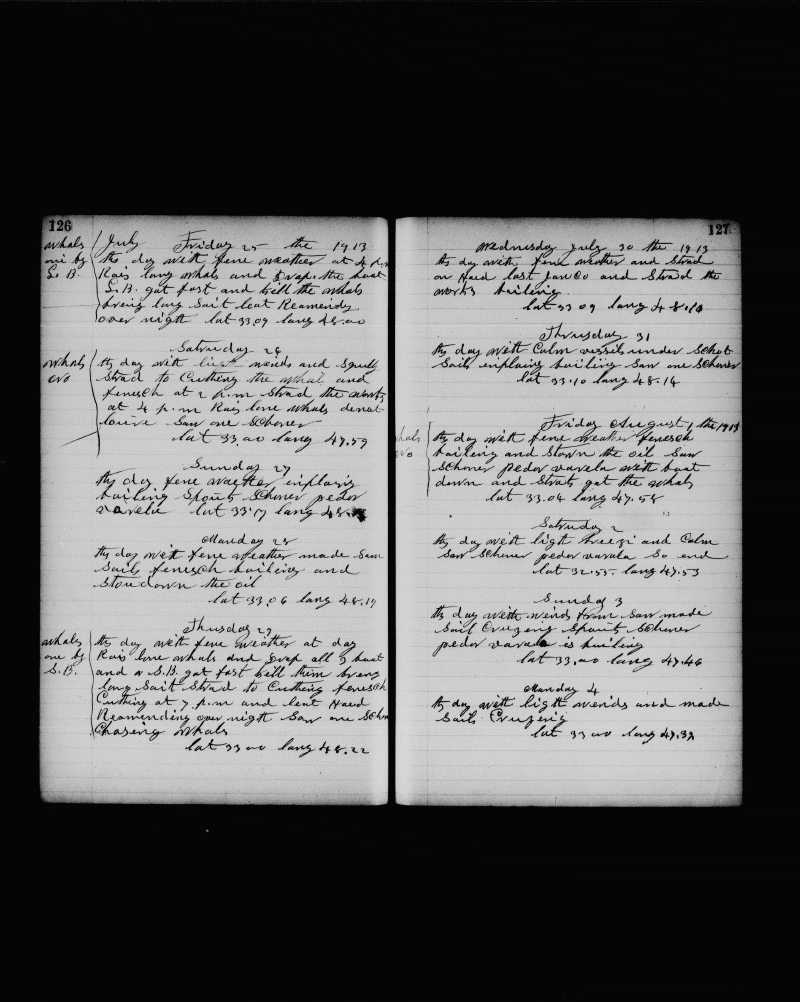 126
whals
one by
L. B.
July Friday 25 the 1913
ths day with fene weather at 4 p.m
Rais long whals and Drap the boat
L. B. gat fast and kill the whals
bring long Sait leat Reamendg
over nigth lat 33 09 lang 48.00
Satruday 26
whals
ths day with ligth weinds and Squlls
Strad to Cutheng the whal and
fenesch at 2 p.m Strad the works
at 4 p.m Rais lone whals
Saw one Schoner
lat 33 00 lang 47.59
Sunday 27
ths day fene waether enplaing
boileing Spouts Schoner pedor
varela lat 33.17 lang 48.
Manday 28
ths day with fene weather made Sam
Sails fenesch boileing and
Stoudown the oil
lat 33.06 lang 48.19
Thusday 29
whals
one by
S. B.
ths day with fene weither at day
Rais lone whals and Drap all 3 boat
and S.B. gat fast kill them breng
long Sait Strad to Cutheng fenesch
Cutheng at 7 p.m and leat Haed
Reamending over nigth Saw one Schn
Chaseng whals
lat 33 00 lang 48.22
127
Wednesday july 30 the 1913
ths day with fene weather and Strad
on Haed last and Strad the
works boileing
lat 33 09 lang 48.10
Thrusday 31
ths day with Calm vessils under Schot
Sails enplaing boileing Saw one Schoner
lat 33.10 lang 48.14
Friday August 1 the 1913
whals
ths day with fene weaher fenesch
boileing and Stown the oil Saw
Schoner pedor varela with boat
down and Strats gat the whals
lat 33.04 lang 47.58
Satruday 2
ths day with ligth breezi and Calm
Saw Schoner pedor varala So end
lat 32.55 lang 47.53
Sunday 3
ths day with weinds from Saw made
Sail Cruzeng Spouts Schoner
pedor varala is boileing
lat 33.00 lang 47.46
Manday 4
ths day with ligth weinds and made
Sails Cruzeng
lat 33 00 lang 47.39